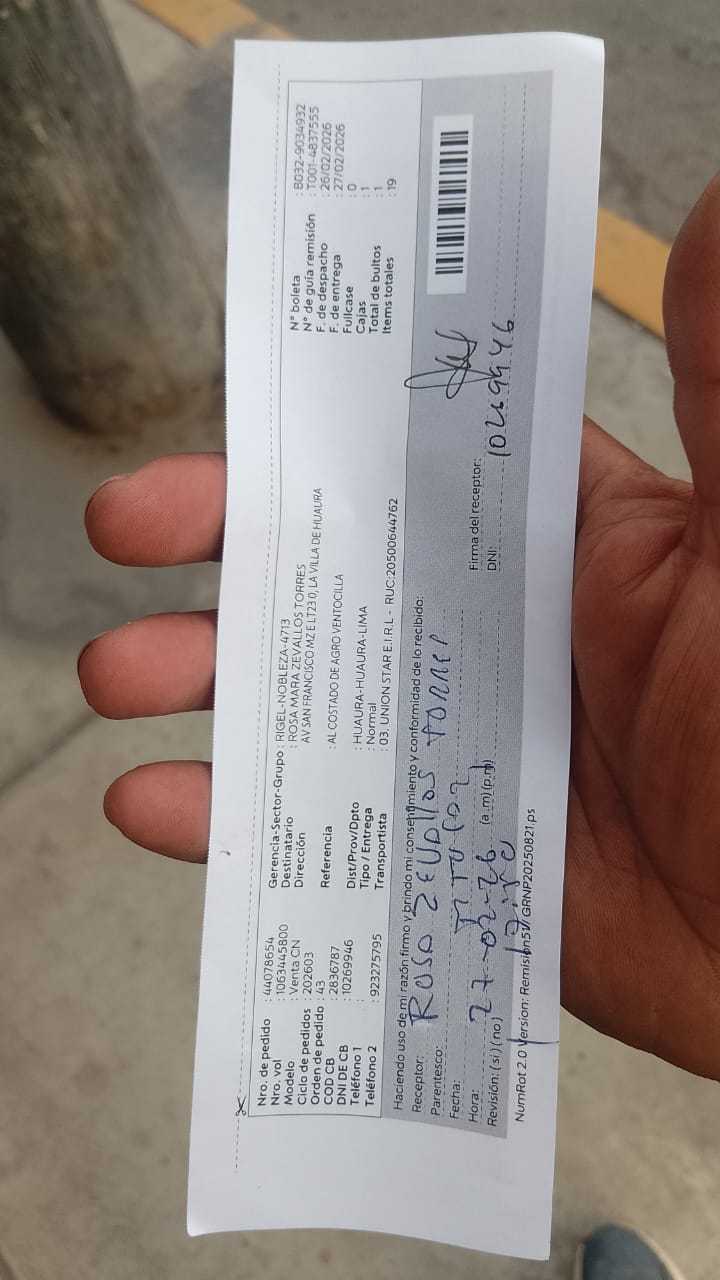 Nro. de pedido : 44078654
Nro. vol : 1063445800
Modelo Venta CN
Ciclo de pedidos : 202603
Orden de pedido : 43
COD CB : 2836787
DNI DE CB : 10269946
Teléfono 1 :
Teléfono 2 : 923275795
Gerencia-Sector-Grupo : RIGEL-NOBLEZA-4713
Destinatario : ROSA MARA ZEVALLOS TORRES
Dirección AV SAN FRANCISCO MZ E LT23 0, LA VILLA DE HUAURA
Referencia : AL COSTADO DE AGRO VENTOCILLA
Dist/Prov/Dpto : HUAURA-HUAURA-LIMA
Tipo / Entrega : Normal
Transportista : 03. UNION STAR E.I.R.L - RUC:20500644762
N° boleta : B032-9034932
N° de guía remisión : T001-4837555
F. de despacho : 26/02/2026
F. de entrega : 27/02/2026
Fullcase : 0
Cajas : 1
Total de bultos : 1
Items totales : 19
Haciendo uso de mi razón firmo y brindo mi consentimiento y conformidad de lo recibido:
Receptor: ROSA ZEVALLOS TORRES
Parentesco:
Fecha: 27-02-26
Hora: (a.m)(p.m)
Revisión: (si) (no)
Firma del receptor:
DNI: 10269946
NumRot 2.0 Version: Remision51/ GRNP20250821.ps